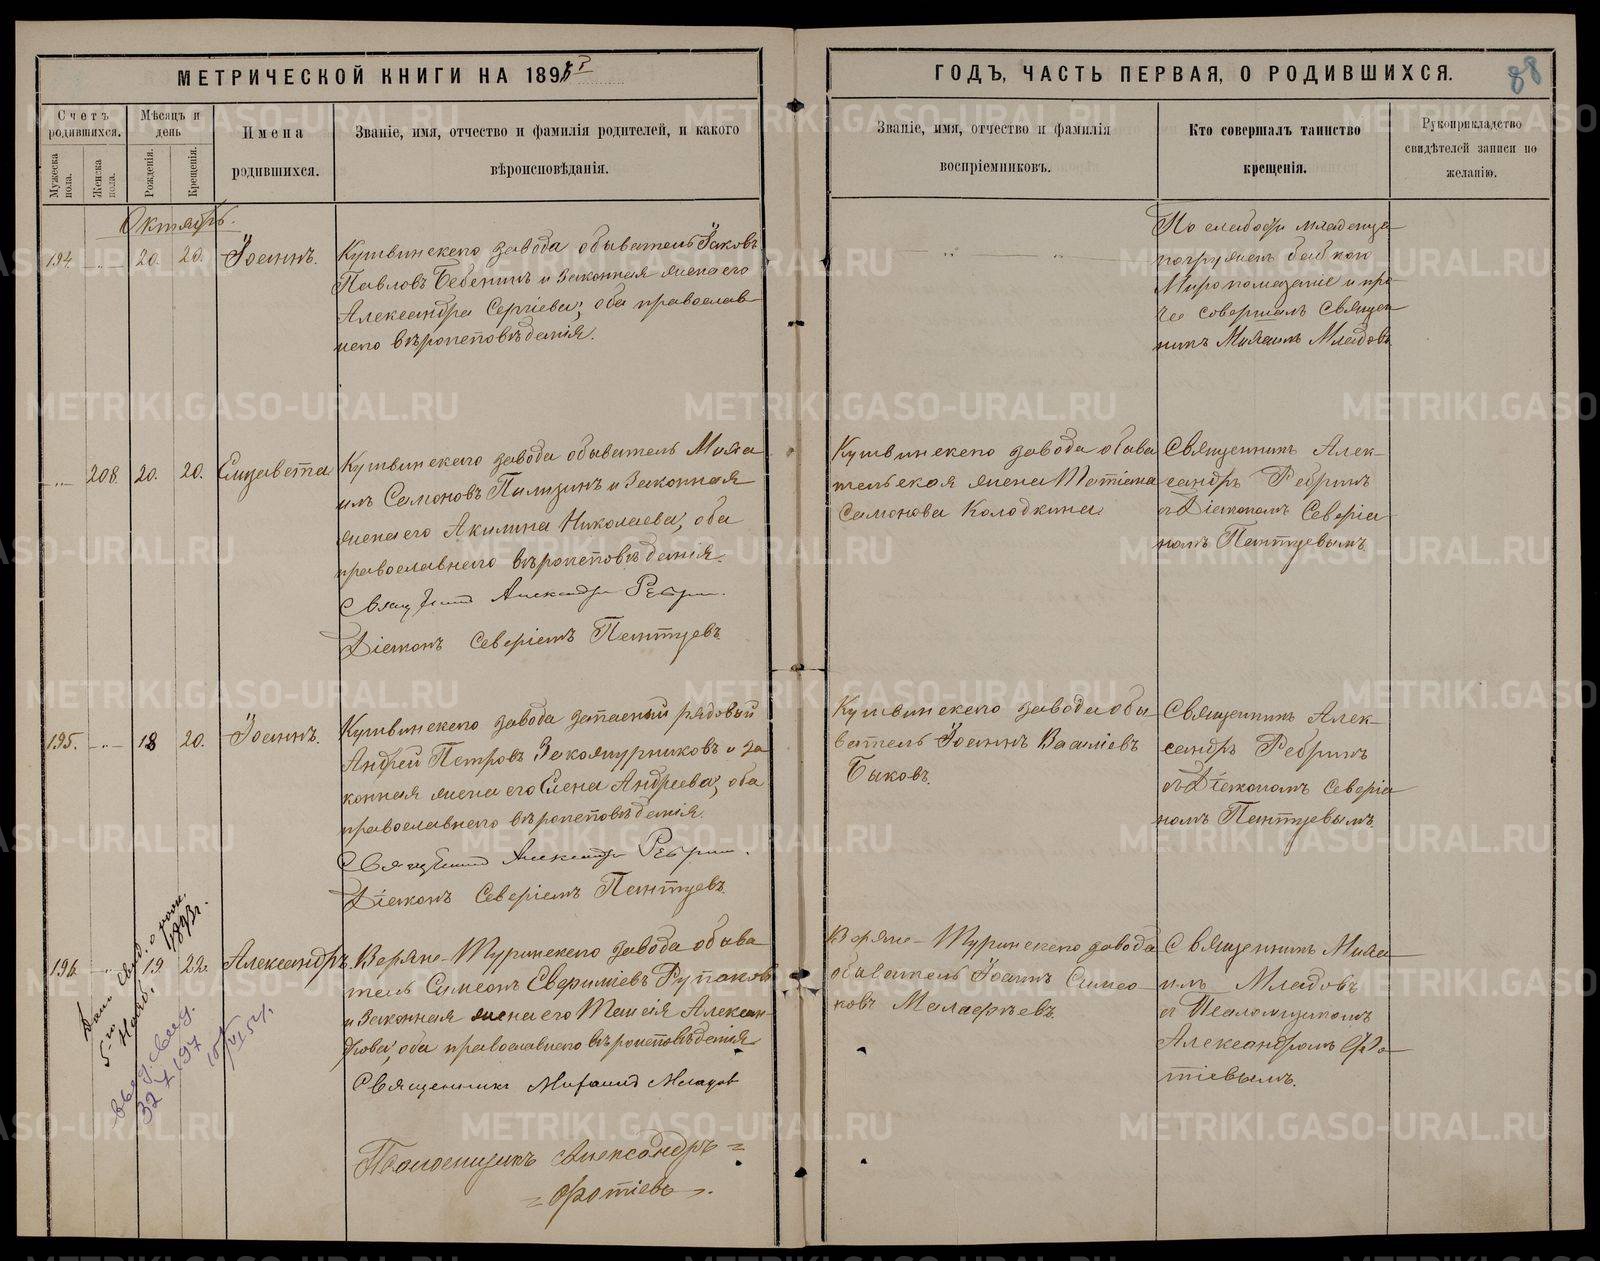 МЕТРИЧЕСКОЙ КНИГИ НА 189
ГОДЪ, ЧАСТЬ ПЕРВАЯ, О РОДИВШИХСЯ.
88
Счетъ родившихся.
Мужеска пола.
Женска пола.
Мѣсяцъ и день
Рожденія.
Крещенія.
Имена родившихся.
Званіе, имя, отчество и фамилія родителей, и какого
вѣроисповѣданія.
Званіе, имя, отчество и фамилія
воспріемниковъ.
Кто совершалъ таинство
крещенія.
Рукоприкладство
свидѣтелей записи по
желанію.
Октябрь.
194. 20. 20. Іоаннъ.
Кушвинскаго завода обыватель Іаковъ
Павловъ Бебенинъ и законная жена его
Александра Сергіева, оба православ-
наго вѣроисповѣданія.
По слабости младенца
погруженъ бабкою
Миропомазаніе и про-
чее совершалъ Священ-
никъ Михаилъ Младовъ
208. 20. 20. Елизавета
Кушвинскаго завода обыватель Миха-
илъ Самоновъ и законная
жена его Акилина Николаева, оба
православнаго вѣроисповѣданія.
Священникъ Александръ Ребринъ.
Діаконъ Северіанъ Пентуевъ.
Кушвинскаго завода обыва-
тельская жена Татіана
Самонова Колодкина.
Священникъ Алек-
сандръ Ребринъ
съ Діакономъ Северіа-
номъ
195. 18 20. Іоаннъ.
Кушвинскаго завода запасный рядовый
Андрей Петровъ и за-
конная жена его Елена Андреева, оба
православнаго вѣроисповѣданія.
Священникъ Александръ Ребринъ.
Діаконъ Северіанъ
Кушвинскаго завода обы-
ватель Іоаннъ Васильевъ
Быковъ.
Священникъ Алек-
сандръ Ребринъ
съ Діакономъ Северіа-
номъ
196. 19. 22. Александръ.
Верхне-Туринскаго завода обыва-
тель Симеонъ
и законная жена его Таисія Алексан-
дрова, оба православнаго вѣроисповѣданія
Священникъ Михаилъ Младовъ
Псаломщикъ Александръ
Фотіевъ.
Верхне-Туринскаго завода
обыватель Іоаннъ Симео-
новъ Малафѣевъ.
Священникъ Миха-
илъ Младовъ
съ Псаломщикомъ
Александромъ Фо-
тіевымъ.
1893 г.
METRIKI.GASO-URAL.RU